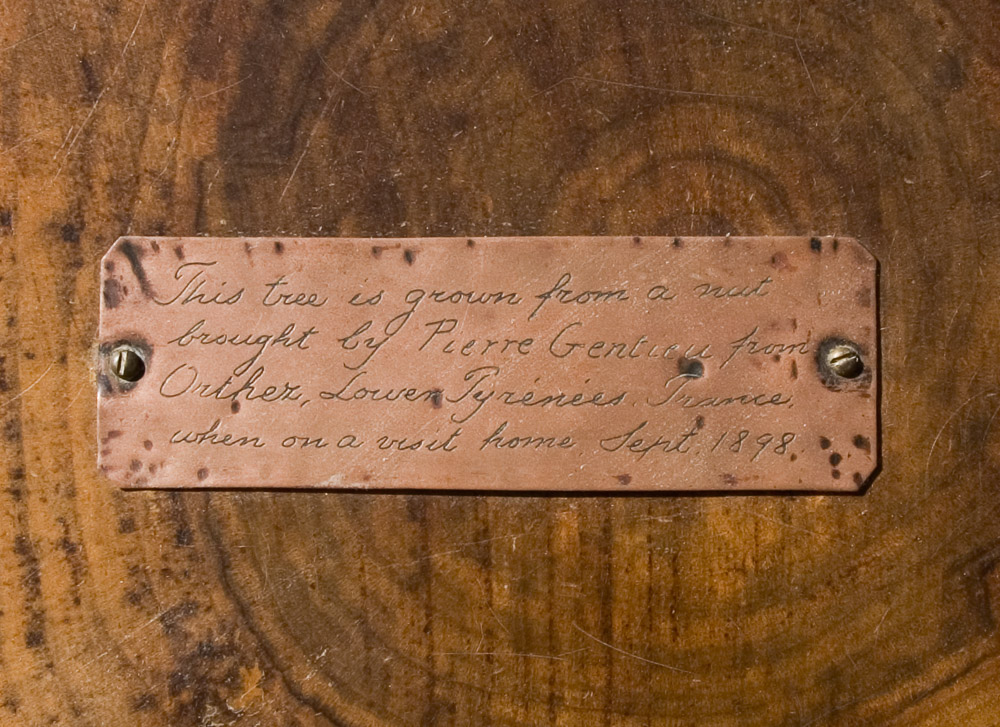 This tree is grown from a nut
brought by Pierre Gentieu from
Orthez, Lower Pyrénées, France,
when on a visit home, Sept. 1898.